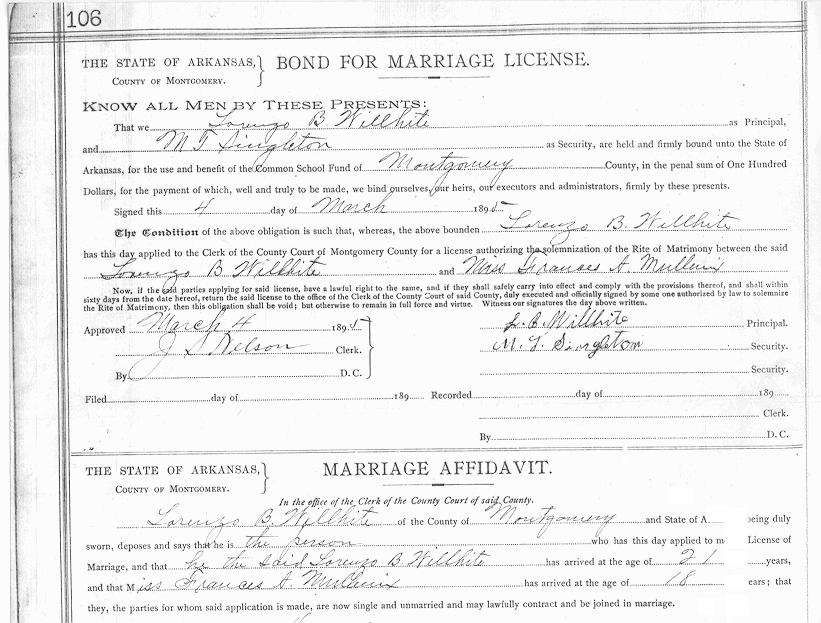 106
THE STATE OF ARKANSAS,
COUNTY OF MONTGOMERY.
BOND FOR MARRIAGE LICENSE.
KNOW ALL MEN BY THESE PRESENTS:
That we Lorenzo B Willhite as Principal,
and M T Singleton as Security, are held and firmly bound unto the State of
Arkansas, for the use and benefit of the Common School Fund of Montgomery County, in the penal sum of One Hundred
Dollars, for the payment of which, well and truly to be made, we bind ourselves, our heirs, our executors and administrators, firmly by these presents.
Signed this 4 day of March 1895
The Condition of the above obligation is such that, whereas, the above bounden Lorenzo B. Willhite
has this day applied to the Clerk of the County Court of Montgomery County for a license authorizing the solemnization of the Rite of Matrimony between the said
Lorenzo B Willhite and Miss Frances A. Mullenix
Now, if the said parties applying for said license, have a lawful right to the same, and if they shall safely carry into effect and comply with the provisions thereof, and shall within
sixty days from the date hereof, return the said license to the office of the Clerk of the County Court of said County, duly executed and officially signed by some one authorized by law to solemnize
the Rite of Matrimony, then this obligation shall be void; but otherwise to remain in full force and virtue. Witness our signatures the day above written.
Approved March 4 1895
J S Nelson Clerk.
By D. C.
L. B. Willhite Principal.
M. T. Singleton Security.
Security.
Filed day of 189 Recorded day of 189
Clerk.
By D. C.
THE STATE OF ARKANSAS,
COUNTY OF MONTGOMERY.
MARRIAGE AFFIDAVIT.
In the office of the Clerk of the County Court of said County.
Lorenzo B. Willhite of the County of Montgomery and State of A being duly
sworn, deposes and says that he is the person who has this day applied to m License of
Marriage, and that he the said Lorenzo B Willhite has arrived at the age of 21 years,
and that Miss Frances A. Mullenix has arrived at the age of 18 ears; that
they, the parties for whom said application is made, are now single and unmarried and may lawfully contract and be joined in marriage.